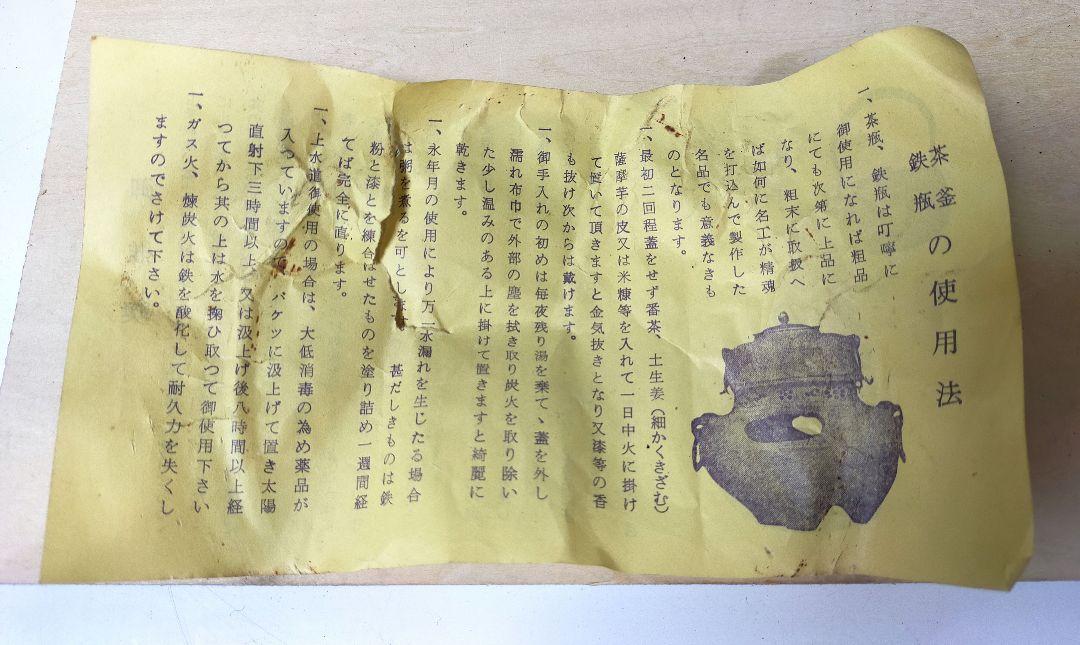 茶釜
鉄瓶
の使用法
一、茶瓶、鉄瓶は叮嚀に
御使用になれば粗品
にても次第に上品に
なり、粗末に取扱へ
ば如何に名工が精魂
を打込んで製作した
名品でも意義なきも
のとなります。
一、最初二回程蓋をせず番茶、土生姜(細かくきざむ)
薩摩芋の皮又は米糠等を入れて一日中火に掛け
て置いて頂きますと金気抜きとなり又漆等の香
も抜け次からは戴けます。
一、御手入れの初めは毎夜残り湯を棄てゝ蓋を外し
濡れ布巾で外部の塵を拭き取り炭火を取り除い
た少し温みのある上に掛けて置きますと綺麗に
乾きます。
一、永年月の使用により万一水漏れを生じたる場合
は粥を煮るを可とし 甚だしきものは鉄
粉と漆とを練合はせたものを塗り詰め一週間経
てば完全に直ります。
一、上水道御使用の場合は、大低消毒の為め薬品が
入つていますの バケツに汲上げて置き太陽
直射下三時間以上、又は汲上げ後八時間以上経
つてから其の上は水を掬ひ取つて御使用下さい
一、ガス火、煉炭火は鉄を酸化して耐久力を失くし
ますのでさけて下さい。